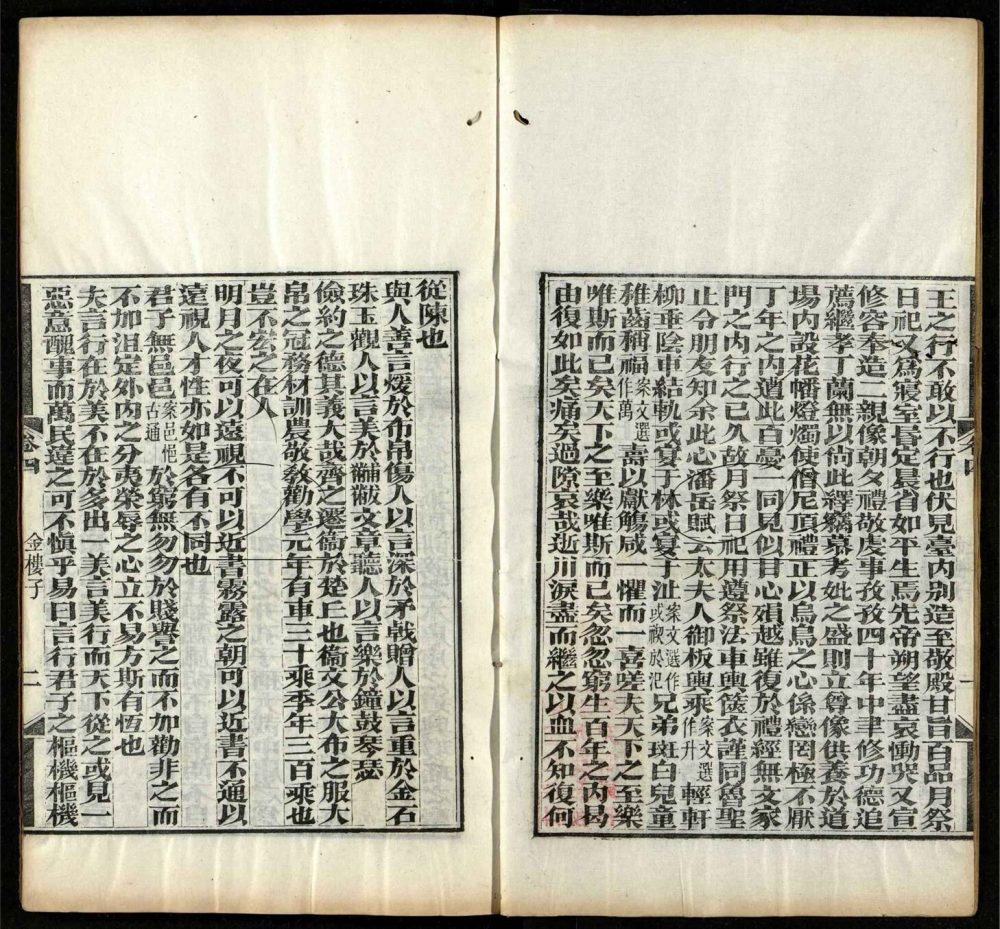 王之行不敢以不行也伏見臺內別造至敬殿甘旨百品月祭
日祀又爲寢室昏定晨省如平生焉先帝朔望盡哀慟哭又宣
修容奉造二親像朝夕禮敬虔事孜孜四十年中聿修功德追
薦繼孝丁蘭無以尙此繹竊慕考妣之盛則立尊像供養於道
場內設花幡燈燭使僧尼頂禮正以烏鳥之心係戀罔極不厭
丁年之內遭此百憂一同見似目心殞越雖復於禮經無文家
門之內行之已久故月祭日祀用遵祭法車輿篋衣謹同魯聖
止令朋友知余此心潘岳賦云太夫人御板輿乘案文選作升輕軒
柳垂陰車結軌或宴于林或宴于沚案文選作或禊於汜兄弟斑白兒童
稚齒稱福案文選作萬壽以獻觴咸一懼而一喜嗟夫天下之至樂
唯斯而已矣天下之至樂唯斯而已矣忽忽窮生百年之內曷
由復如此矣痛矣過隙哀哉逝川淚盡而繼之以血不知復何
從陳也
與人善言煖於布帛傷人以言深於矛戟贈人以言重於金石
珠玉觀人以言美於黼黻文章聽人以言樂於鐘鼓琴瑟
儉約之德其義大哉齊之遷衞於楚丘也衞文公大布之服大
帛之冠務材訓農敬敎勸學元年有車三十乘季年三百乘也
豈不宏之在人
明月之夜可以遠視不可以近書霧露之朝可以近書不通以
遠視人才性亦如是各有不同也
君子無邑邑案邑悒古通於窮無勿勿於賤譽之而不加勸非之而
不加沮定外內之分夷榮辱之心立不易方斯有恆也
夫言行在於美不在於多出一美言美行而天下從之或見一
惡意醜事而萬民違之可不愼乎易曰言行君子之樞機樞機
卷四
金樓子
二